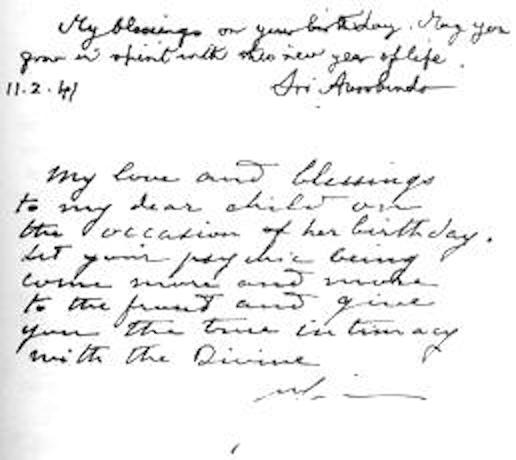 My blessings on your birthday. May you
grow in spirit with this new year of life.
11.2.41 Sri Aurobindo
My love and blessings
to my dear child on
the occasion of her birthday.
Let your psychic being
come more and more
to the front and give
you the true intimacy
with the Divine